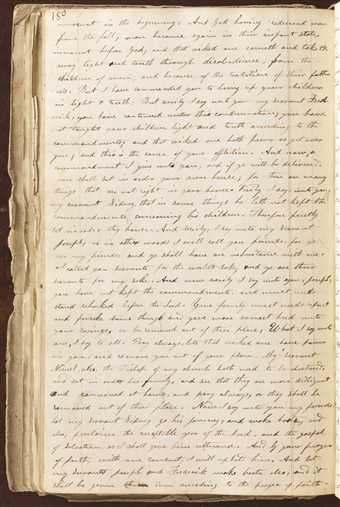 150
innocent in the beginning; And God having redeemed man
from the fall, man became again in their infant state
innocent before God; and that wicked one cometh and taketh
away light and truth through disobedience, from the
children of men, and because of the tradition of their fath
ers. But I have commanded you to bring up your children
in light & truth. But verily I say unto you my servant Fred
rick, you have continued under this condemnation, you have
not taught your children light and truth according to the
commandments, and that wicked one hath power as yet over
you, and this is the cause of your affliction. And now, a
commandment I give unto you, and if ye will be delivered,
you shall set in order your own house, for there are many
things that are not right in your house. Verily I say unto you,
my servant Sidney, that in some things he hath not kept the
commandments, concerning his children. Therefore firstly
set in order thy house. And verily, I say unto my servant
Joseph, or in other words I will call you friends, for ye
are my friends, and ye shall have an inheritance with me.
I called you servants for the world's sake, and ye are their
servants for my sake. And now verily I say unto you Joseph,
you have not kept the commandments, and must needs
stand rebuked before the Lord. Your family must needs repent
and forsake some things and give more earnest heed unto
your sayings, or be removed out of their place. What I say unto
one, I say to all. Pray always, lest that wicked one have power
in you, and remove you out of your place. My servant
Newel also, the Bishop of my church hath need to be chastened
and set in order his family, and see that they are more diligent
and concerned at home, and pray always, or they shall be
removed out of their place. Now I say unto you my friends,
let my servant Sidney go his journey, and make haste, and
also, proclaim the acceptable year of the Lord, and the gospel
of salvation, as I shall give him utterance. And by your prayer
of faith, with one consent, I will uphold him. And let
my servants Joseph and Frederick make haste also, and it
shall be given them even according to the prayer of faith.